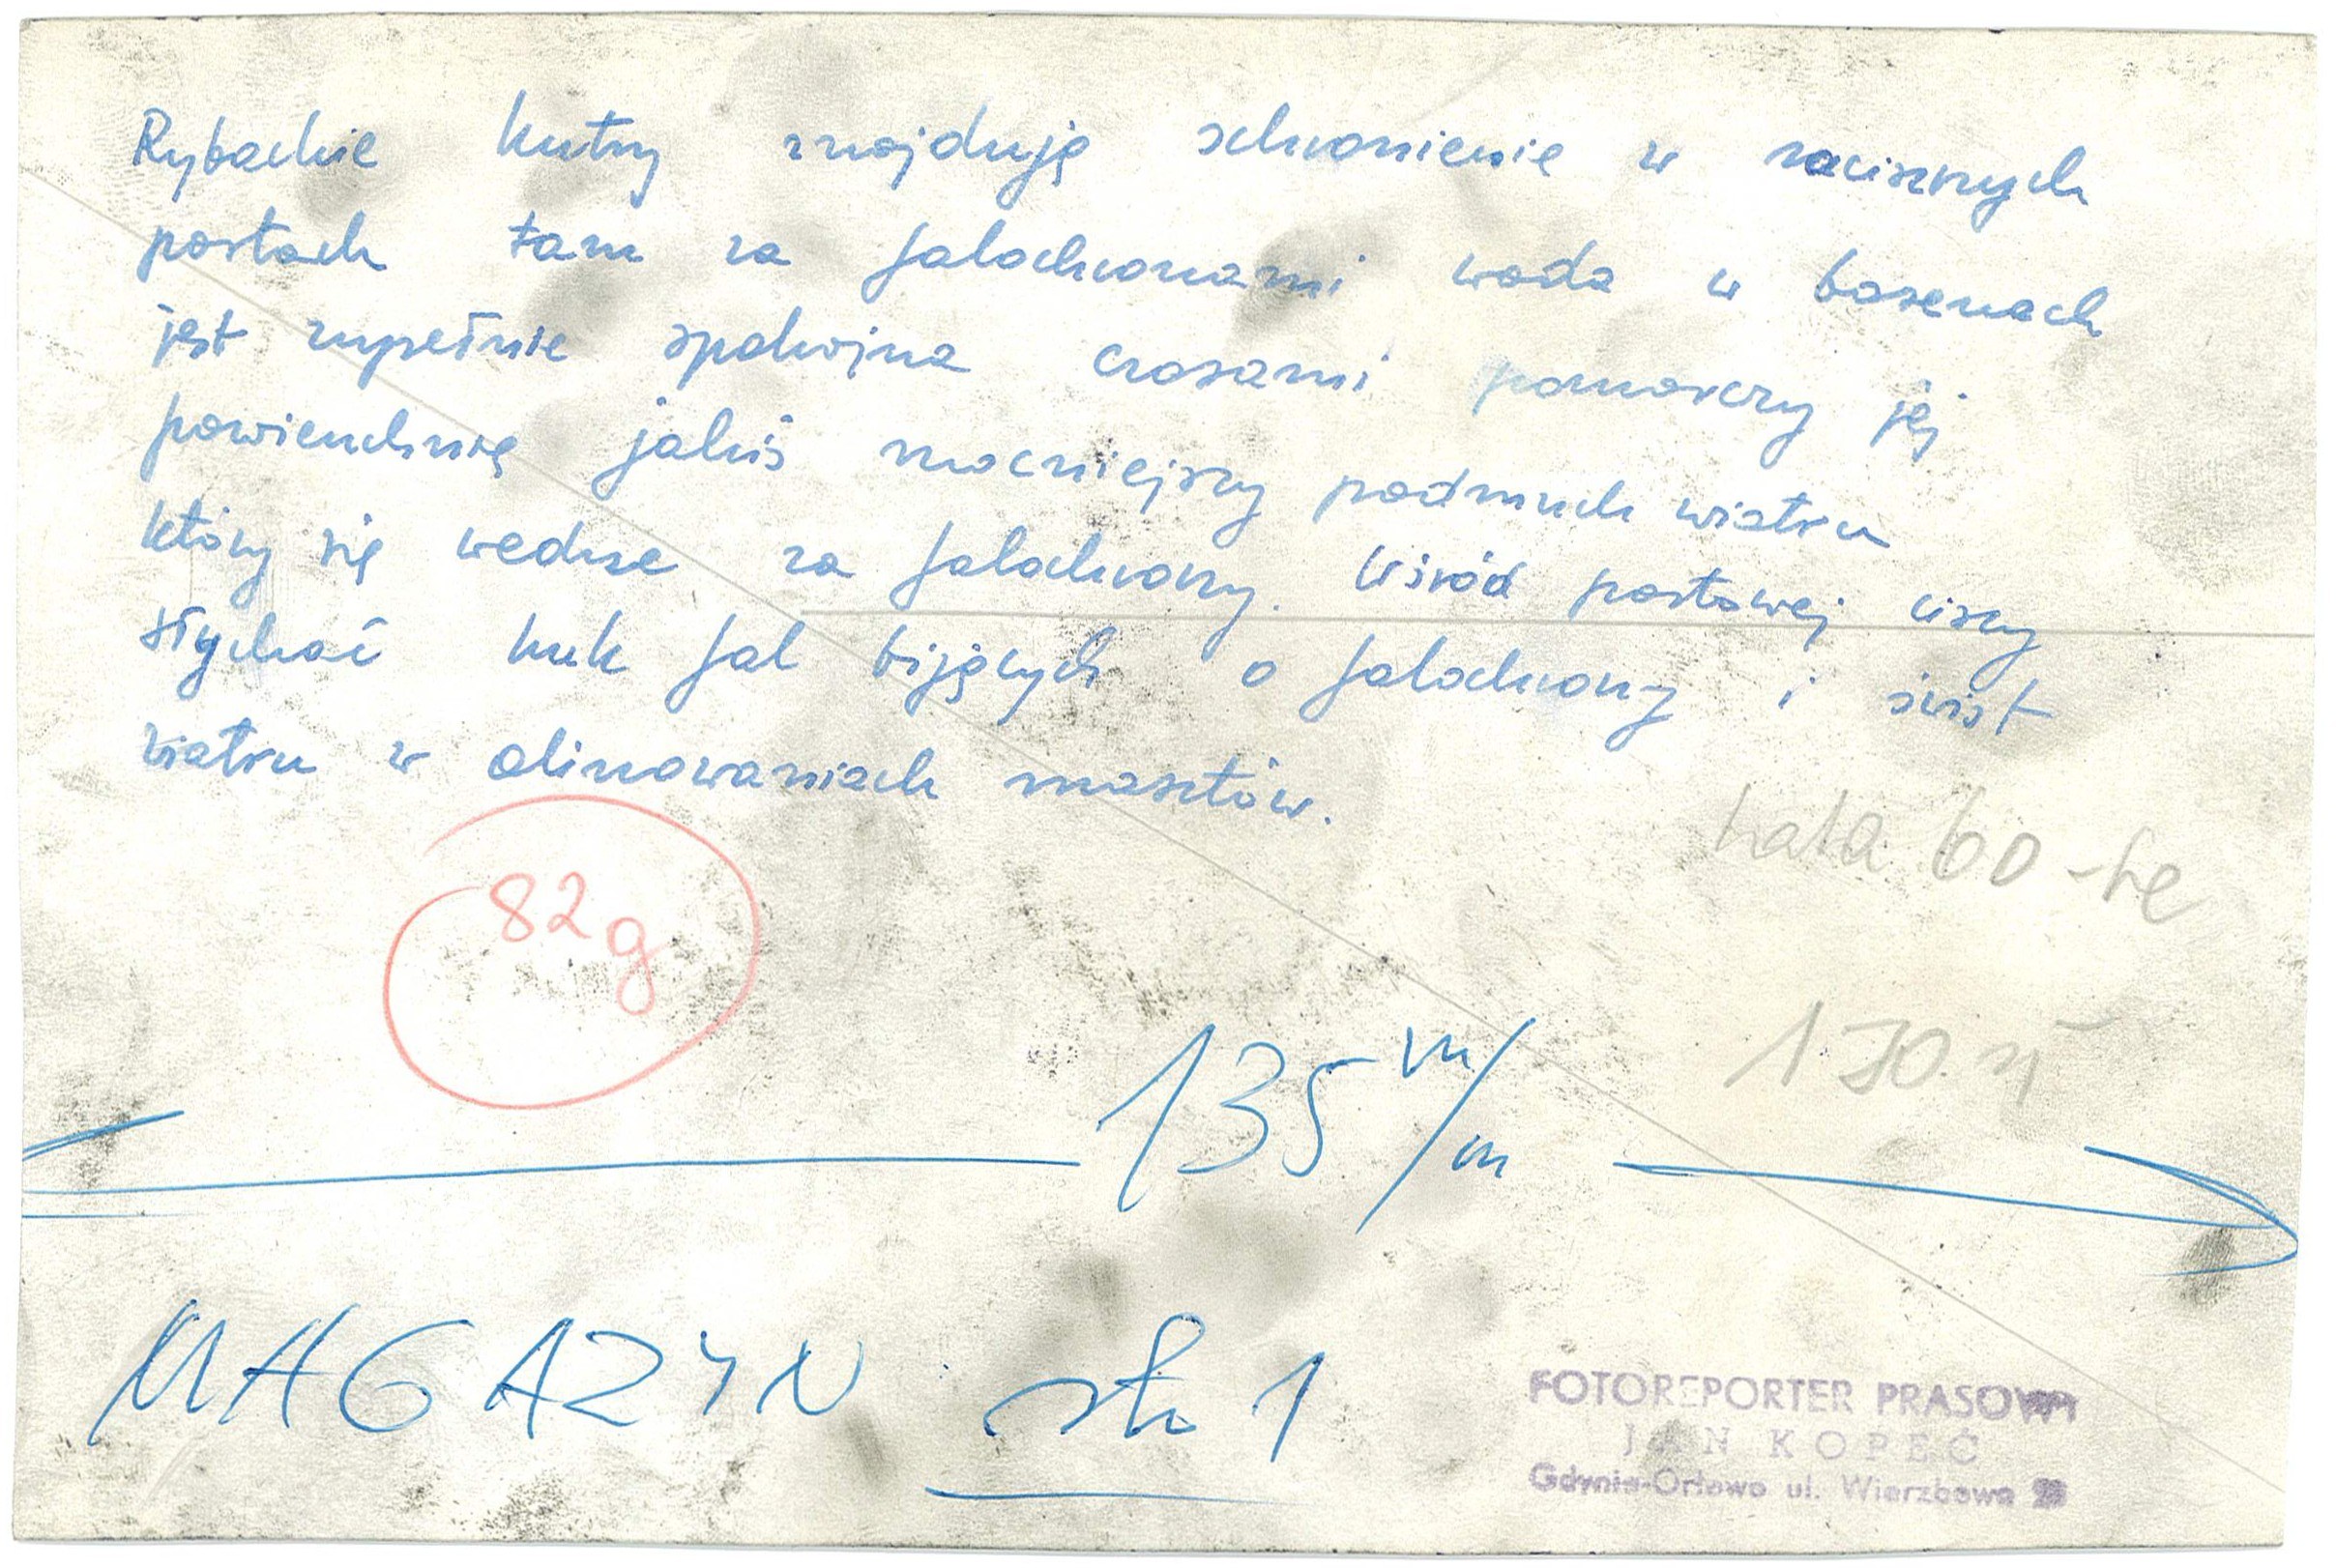 Rybackie kutry znajdują schronienie w zacisznych
portach tam za falochronami woda w basenach
jest zupełnie spokojna czasami pomarszczy jej
powierzchnię jakiś mocniejszy podmuch wiatru
który się wedrze za falochrony. Wśród portowej ciszy
słychać huk fal bijących o falochrony i świst
wiatru w olinowaniach masztów.
lata 60-te
82g
170 zł
135 m/m
MAGAZYN str 1
FOTOREPORTER PRASOWY
JAN KOPEĆ
Gdynia-Orłowo ul. Wierzbowa